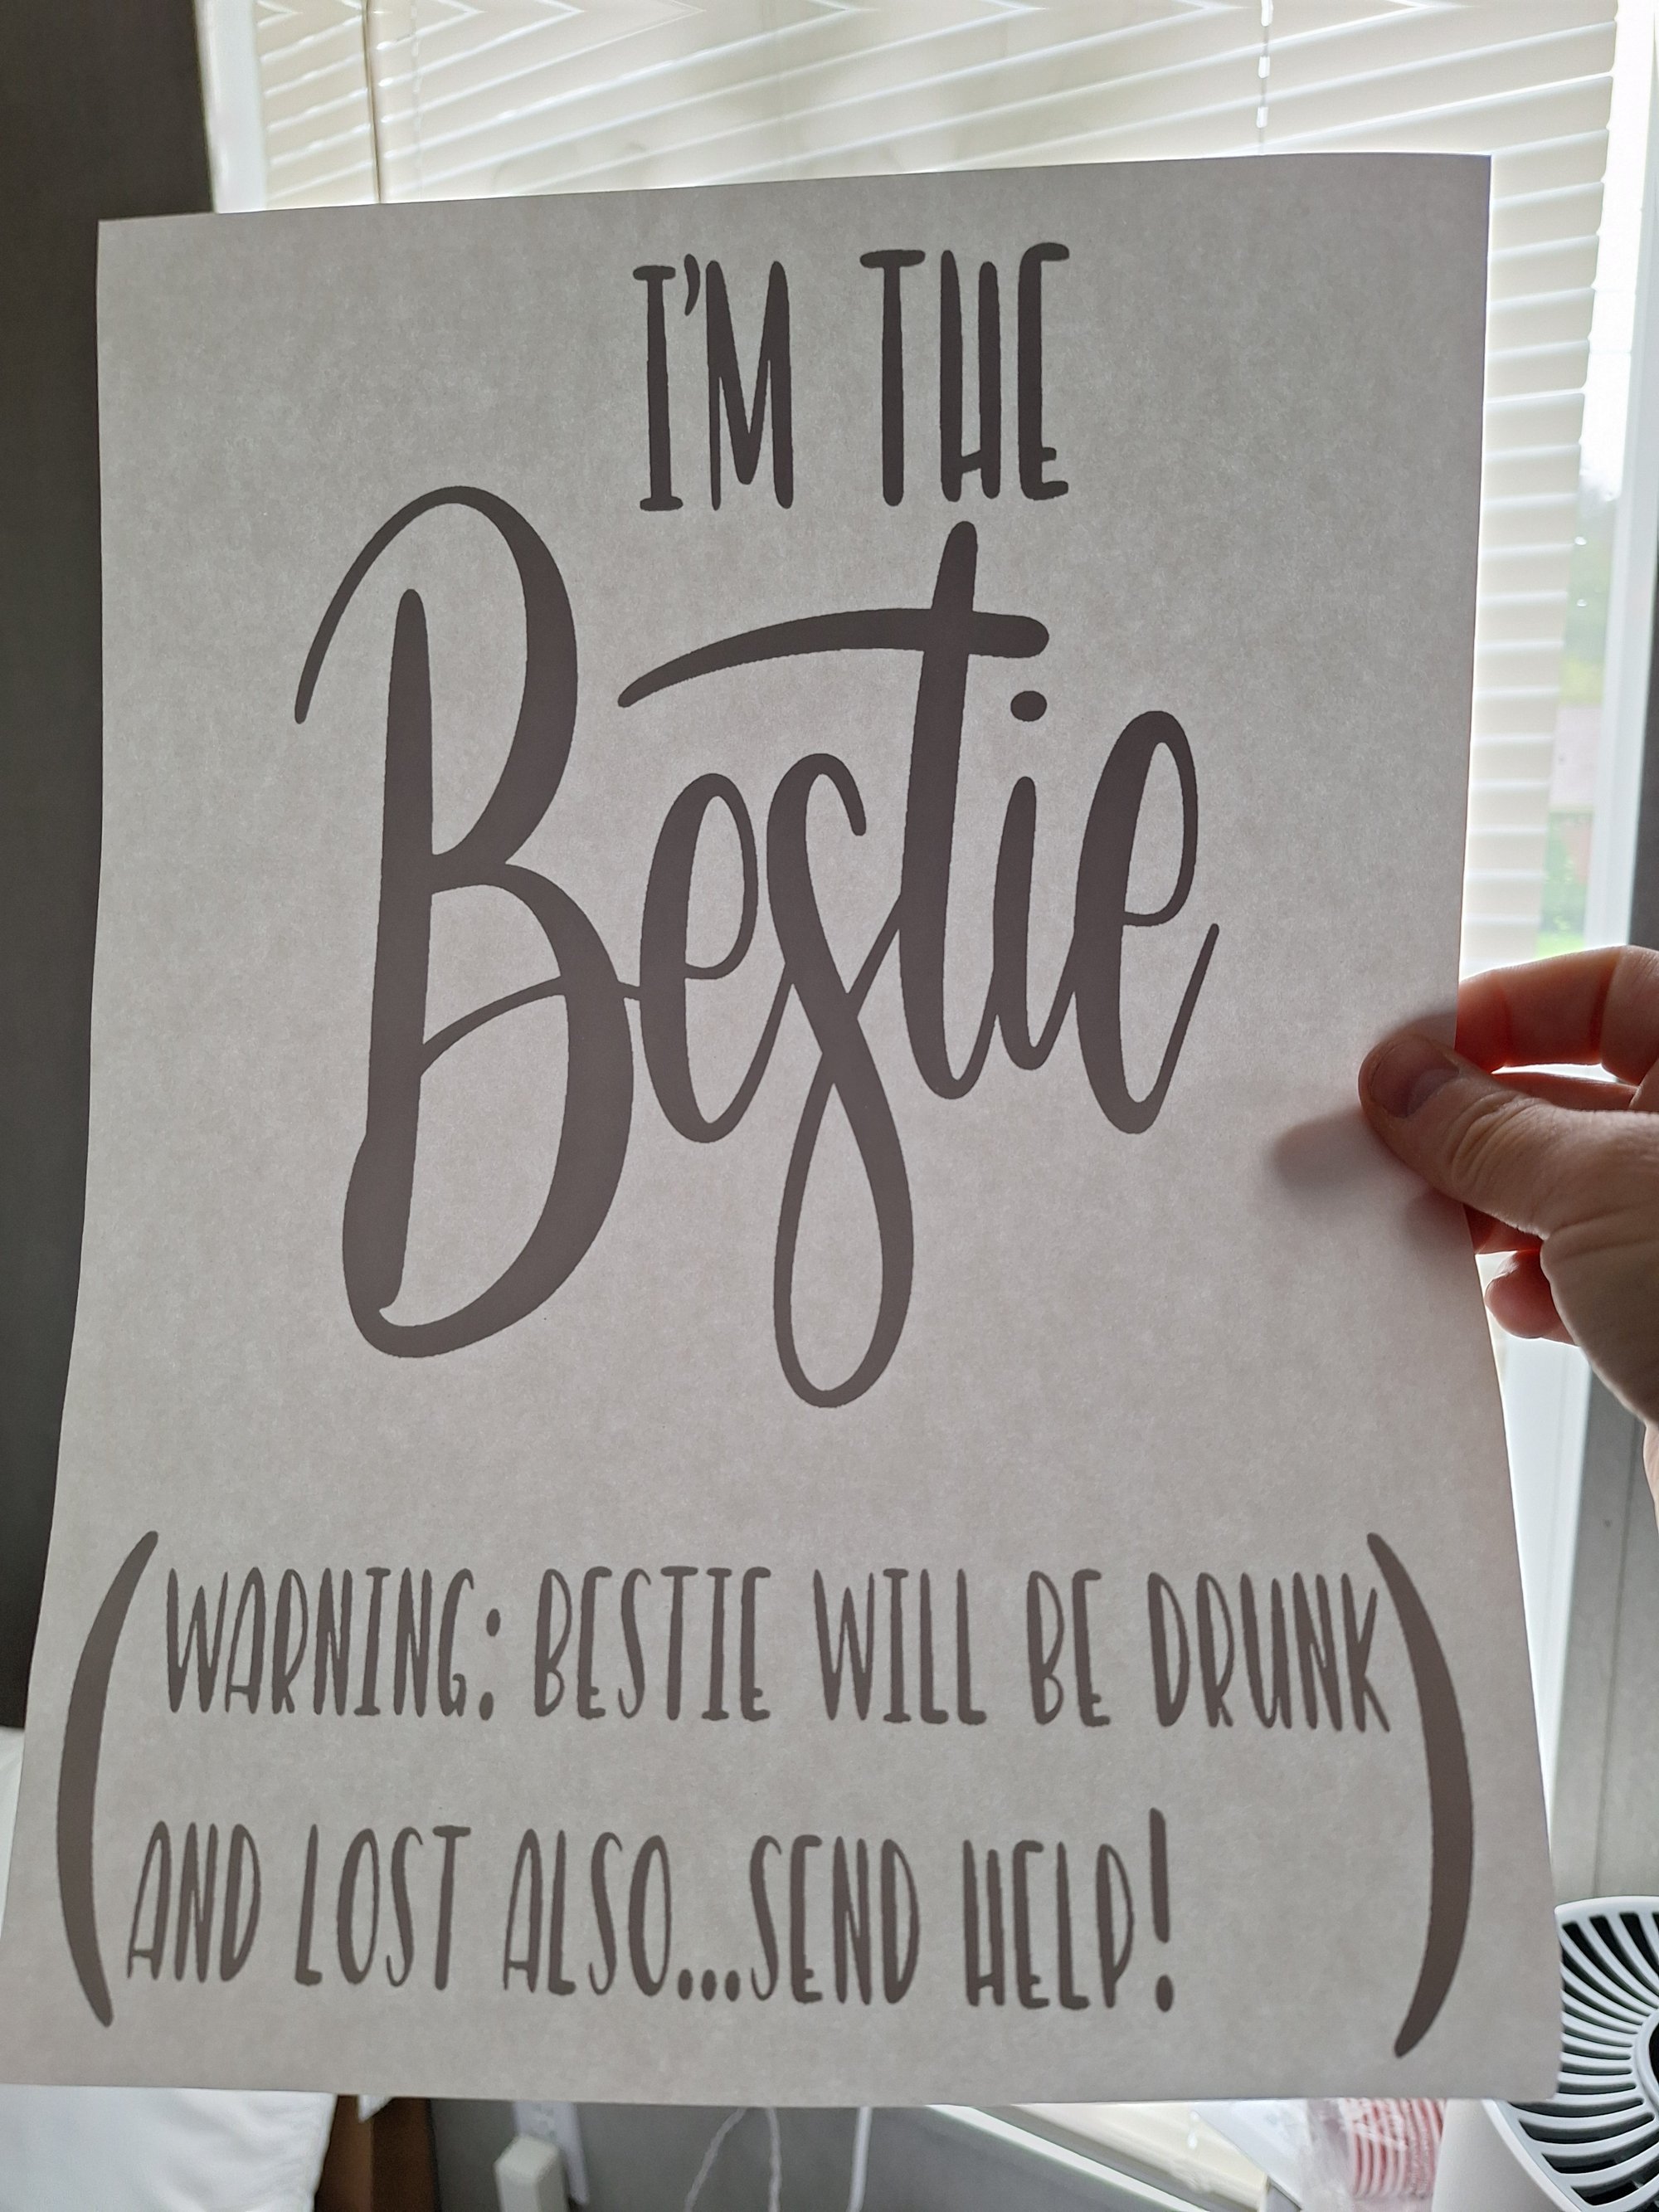 I'M THE
Bestie
(WARNING: BESTIE WILL BE DRUNK
AND LOST ALSO...SEND HELP!)